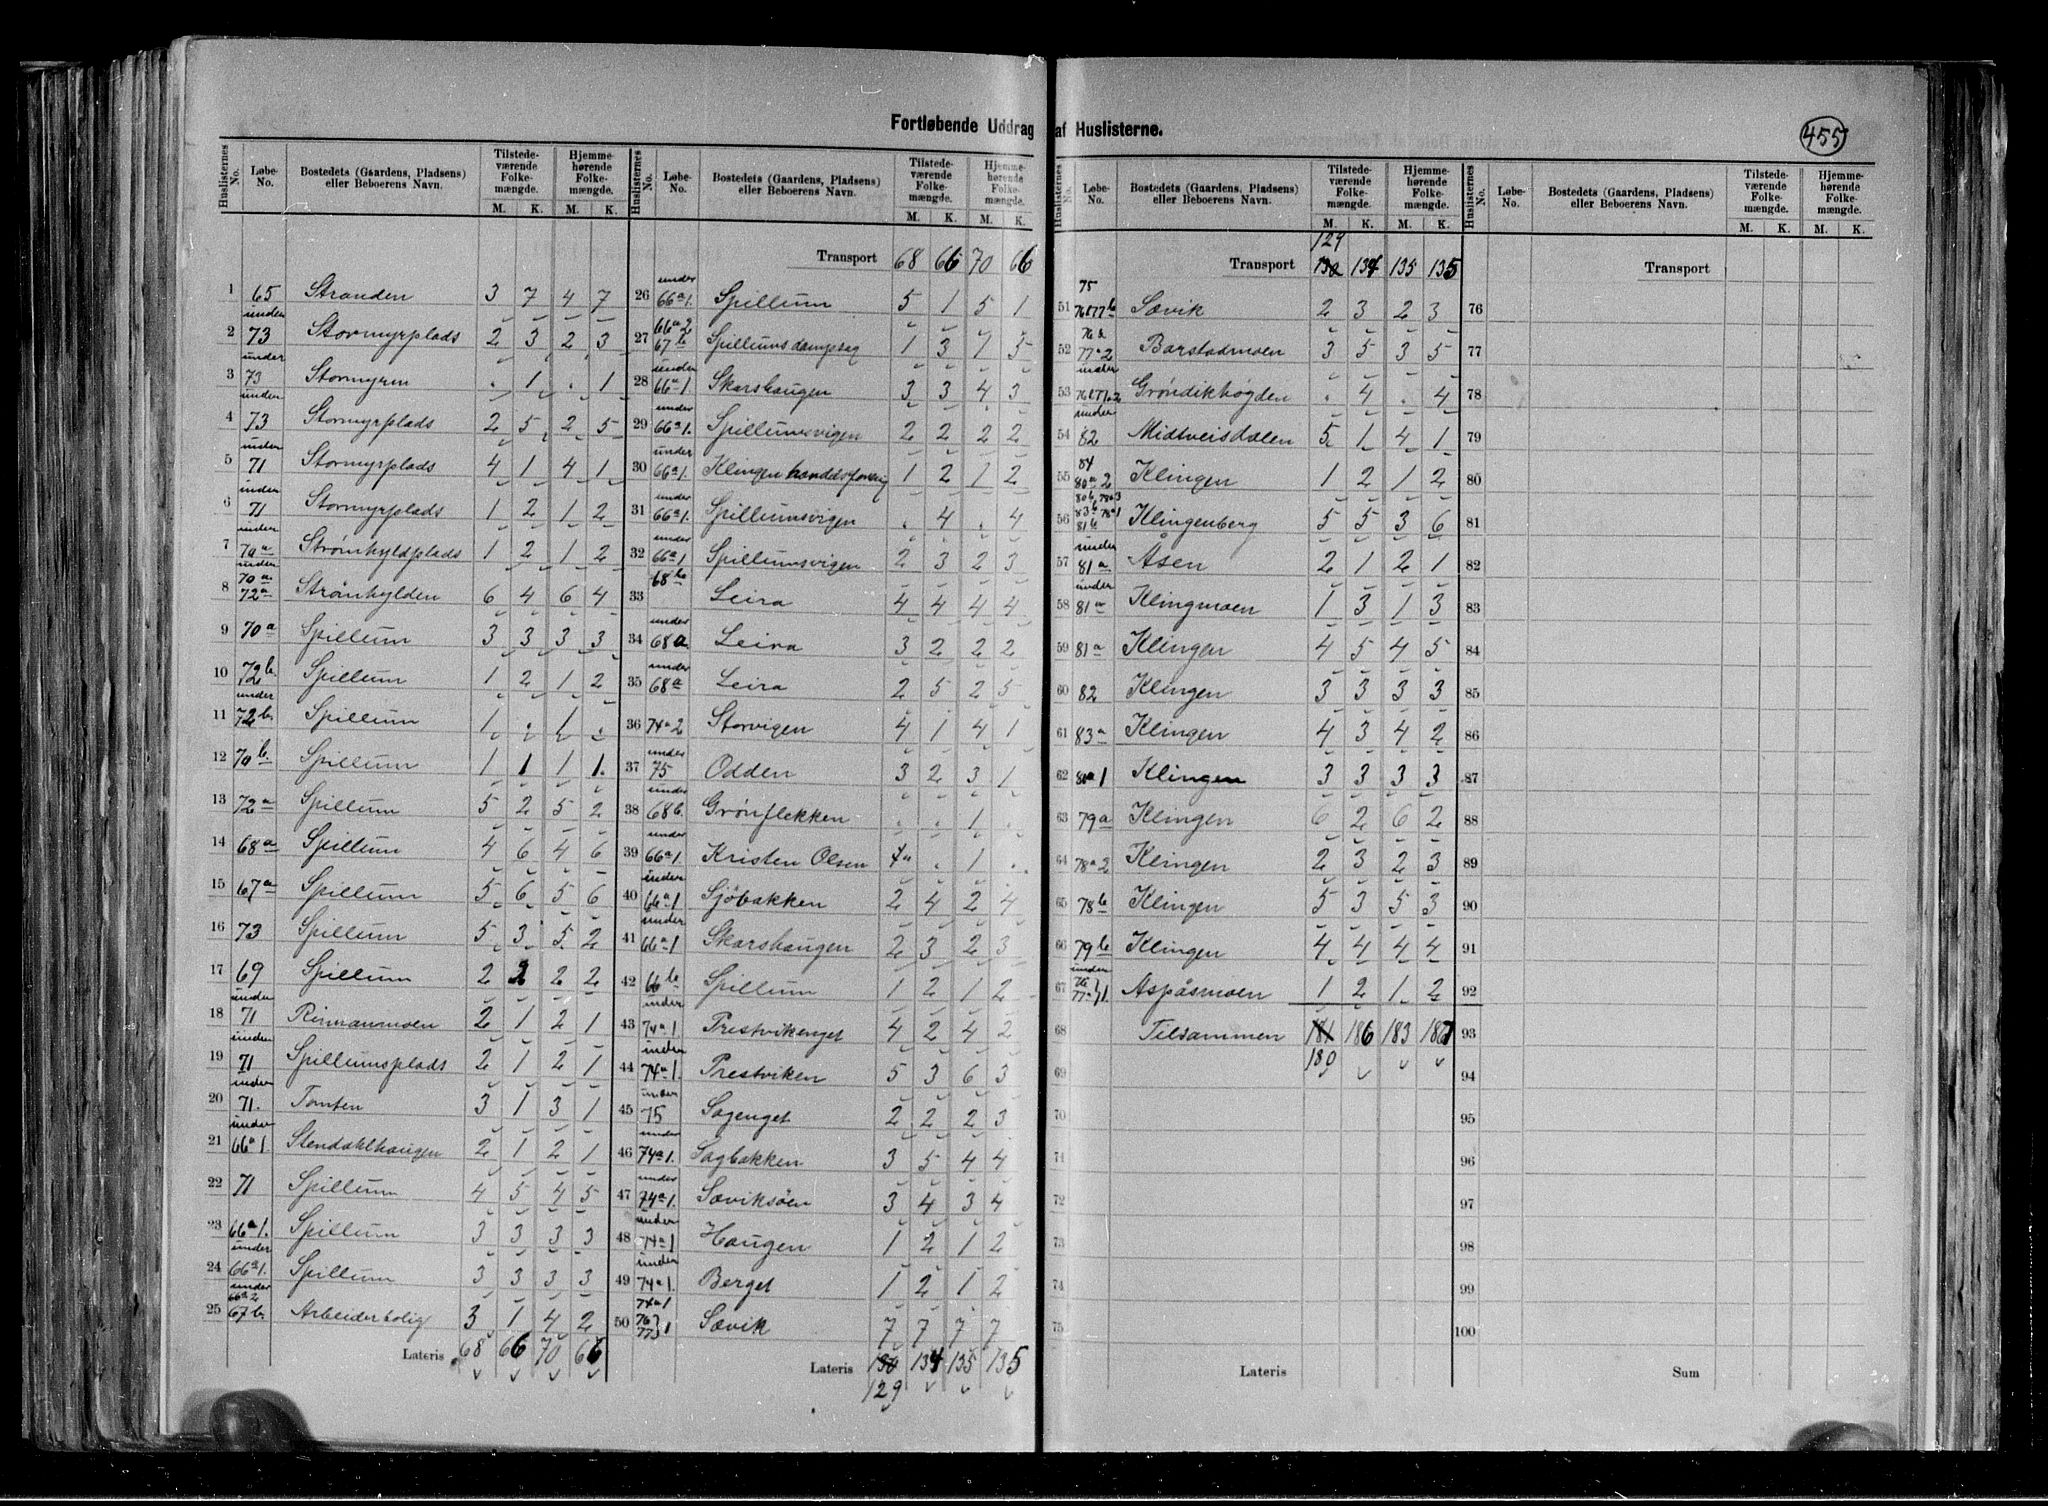 455
Fortløbende Uddrag af Huslisterne.
Huslisternes No. Løbe-No. Bostedets (Gaardens, Pladsens) eller Beboerens Navn. Tilstede-værende Folke-mængde. M. K. Hjemme-hørende Folke-mængde. M. K.
1 65 Stranden 3 7 4 7
2 under 73 Stormyrplads 2 3 2 3
3 under 73 Stormyren . 1 . 1
4 under 73 Stormyrplads 2 5 2 5
5 under 71 Stormyrplads 4 1 4 1
6 under 71 Stormyrplads 1 2 1 2
7 under 70a Strømhyldplads 1 2 1 2
8 under 70a 72a Strømhylden 6 4 6 4
9 70a Spillum 3 3 3 3
10 72b. Spillum 1 2 1 2
11 under 72b. Spillum 1 . 1 .
12 70b. Spillum 1 1 1 1.
13 72a Spillum 5 2 5 2
14 68a Spillum 4 6 4 6
15 67a Spillum 5 6 5 6
16 73 Spillum 5 3 5 2
17 69 Spillum 2 2 2 2
18 under 71 Rinnanmoen 2 1 2 1
19 under 71 Spillumsplads 2 1 2 1
20 under 71. Tomten 3 1 3 1
21 under 66a1. Stendahlhaugen 2 1 2 1
22 71 Spillum 4 5 4 5
23 66a1. Spillum 3 3 3 3
24 under 66a1. Spillum 3 3 3 3
25 under 66a2 67b. Arbeiderbolig 3 1 4 2
Lateris 68 66 70 66
Huslisternes No. Løbe-No. Bostedets (Gaardens, Pladsens) eller Beboerens Navn. Tilstede-værende Folke-mængde. M. K. Hjemme-hørende Folke-mængde. M. K.
Transport 68 66 70 66
26 under 66a1. Spillum 5 1 5 1
27 66a2 67b Spillums dampsag 1 3 1 3
28 under 66a1 Skarshaugen 3 3 4 3
29 under 66a1. Spillumsvigen 2 2 2 2
30 under 66a1 Klingen handelsforenig 1 2 1 2
31 under 66a1. Spillumsvigen . 4 . 4
32 under 66a1 Spillumsvigen 2 3 2 3
33 68b Leira 4 4 4 4
34 under 68a Leira 3 2 2 2
35 under 68a Leira 2 5 2 5
36 74a2 Storvigen 4 1 4 1
37 under 75 Odden 3 2 3 1
38 under 68b. Grønflekken . . 1 .
39 under 66a1 Kristen Olsen . 1 .
40 under 66a1 Sjöbakken 2 4 2 4
41 under 66a1 Skarshaugen 2 3 2 3
42 66b Spillum 1 2 1 2
43 under 74a1. Prestvikenget 4 2 4 2
44 under 74a1. Prestviken 5 3 6 3
45 under 75 Sagenget 2 2 2 3
46 under 74a1. Sagbakken 3 5 4 4
47 under 74a1. Sæviksöen 3 4 3 4
48 under 74a1 Haugen 1 2 1 2
49 under 74a1. Berget 1 2 1 2
50 74a1 76 77 1 Sævik 7 7 7 7
Lateris 130 134 135 135
129
Huslisternes No. Løbe-No. Bostedets (Gaardens, Pladsens) eller Beboerens Navn. Tilstede-værende Folke-mængde. M. K. Hjemme-hørende Folke-mængde. M. K.
129
Transport 130 134 135 135
51 75 76 77b Sævik 2 3 2 3
52 76a 77a2 Barstadmoen 3 5 3 5
53 under Grøndikhøgden . 4 . 4
54 under 82 Midtveisdalen 5 1 4 1
55 84 80a2 Klingen 1 2 1 2
56 80b, 78a3 83b 78a1 81b Klingenberg 5 5 3 6
57 under 81a Åsen 2 1 2 1
58 under 81a Klingmoen 1 3 1 3
59 81a Klingen 4 5 4 5
60 82 Klingen 3 3 3 3
61 83a Klingen 4 3 4 2
62 80a1 Klingen 3 3 3 3
63 79a Klingen 6 2 6 2
64 78a2 Klingen 2 3 2 3
65 78b Klingen 5 3 5 3
66 79b Klingen 4 4 4 4
67 under 76 77a 1. Aspåsmoen 1 2 1 2
68 Tilsammen 181 186 183 187
69 180
70
71
72
73
74
75
Lateris
Huslisternes No. Løbe-No. Bostedets (Gaardens, Pladsens) eller Beboerens Navn. Tilstede-værende Folke-mængde. M. K. Hjemme-hørende Folke-mængde. M. K.
Transport
76
77
78
79
80
81
82
83
84
85
86
87
88
89
90
91
92
93
94
95
96
97
98
99
100
Sum